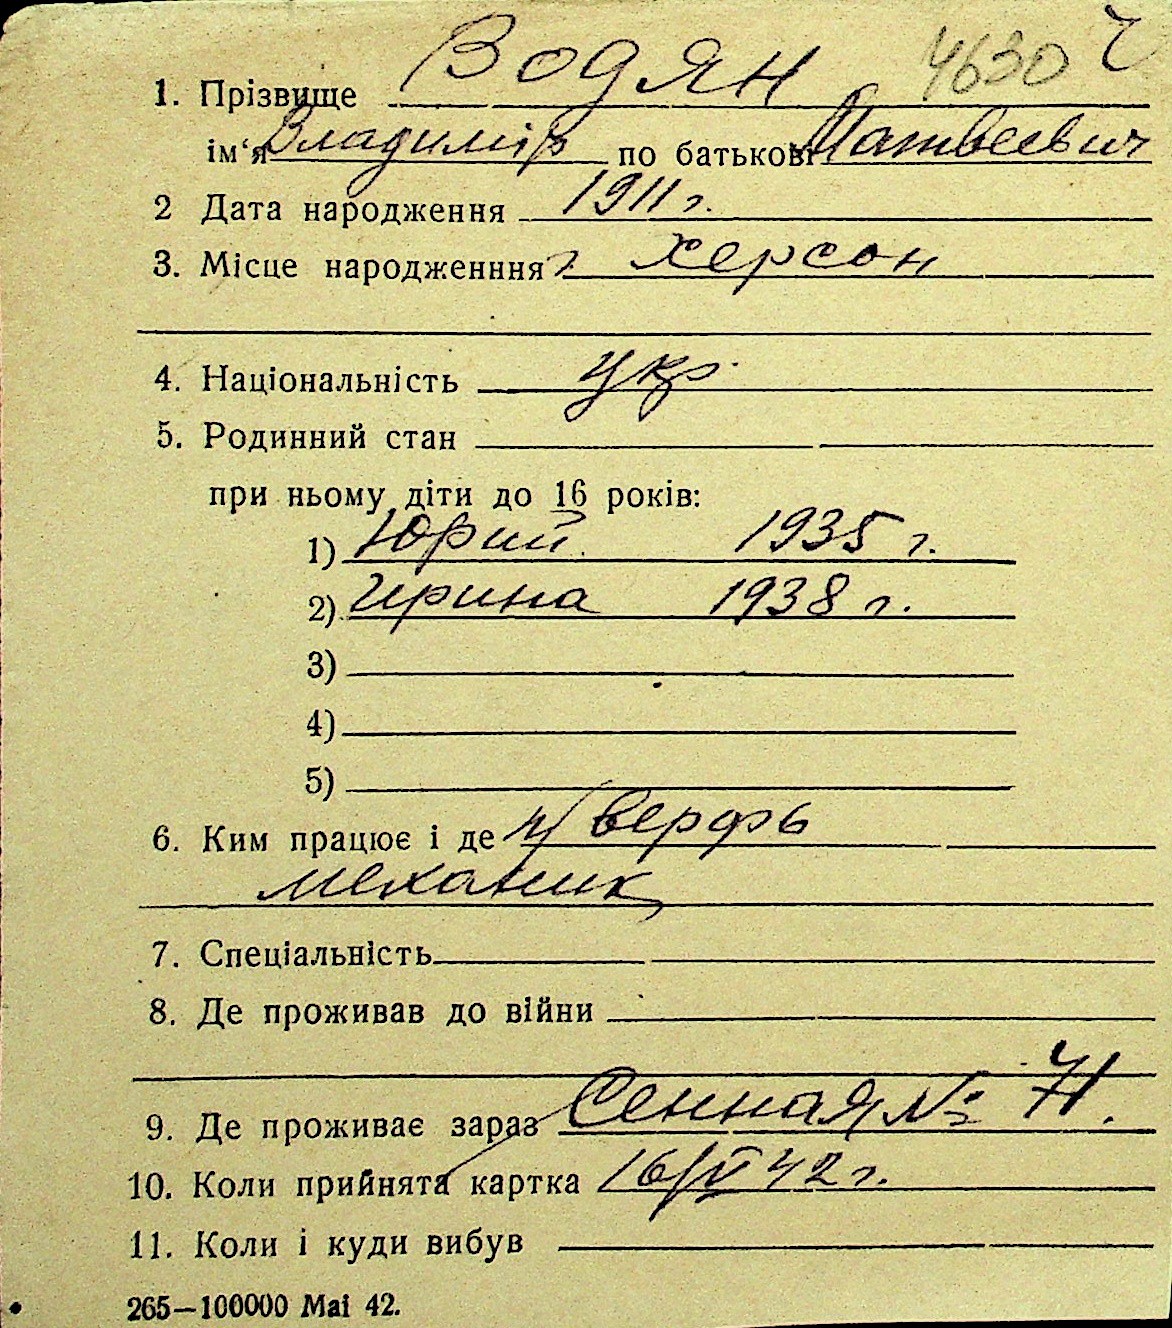 4630
1. Прізвище Водян
ім'я Владимір по батькові Матвеевич
2 Дата народження 1911 г.
3. Місце народженння г. Херсон
4. Національність укр.
5. Родинний стан
при ньому діти до 16 років:
1) Юрий 1935 г.
2) Ирина 1938 г.
3)
4)
5)
6. Ким працює і де верфь
механик
7. Спеціальність
8. Де проживав до війни
9. Де проживає зараз Сенная № 71.
10. Коли прийнята картка 16/V 42 г.
11. Коли і куди вибув
265—100000 Маі 42.